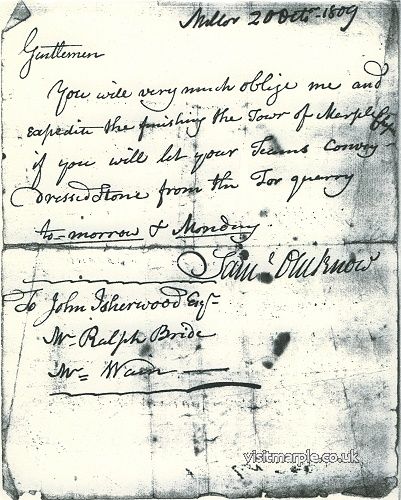 Mellor 20 Octr. 1809
Gentlemen
You will very much oblige me and
expedite the finishing the Tower of Marple
if you will let your Teams Convey
dressed Stone from the Tor quarry
to-morrow & Monday
Saml Oldknow
To John Isherwood Esqr.
Mr Ralph Bride
Mr
visitmarple.co.uk